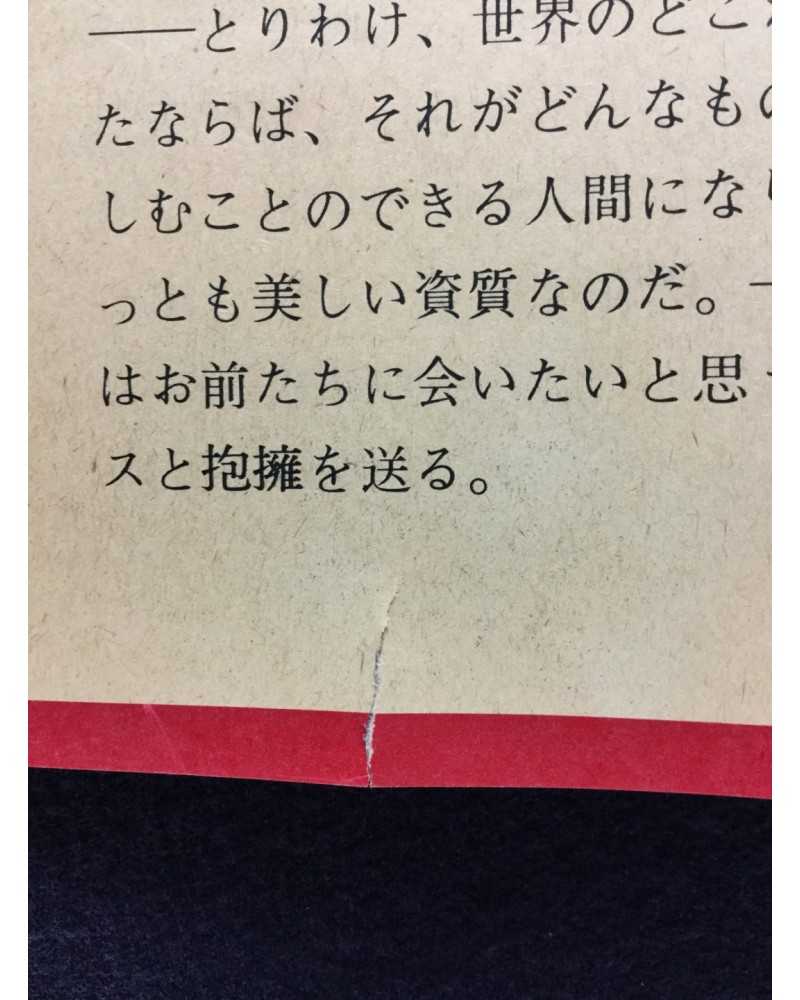 ――とりわけ、世界のどこ
たならば、それがどんなもの
しむことのできる人間にな
っとも美しい資質なのだ。
はお前たちに会いたいと思
スと抱擁を送る。